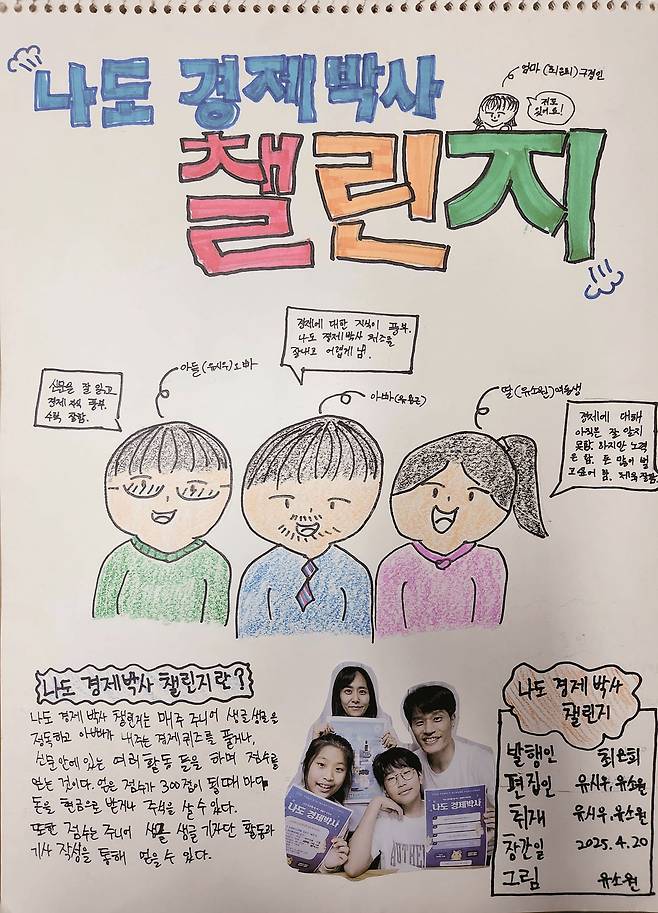 나도 경제박사
챌린지
엄마 (최은희) 구경인
저도
있어요!
경제에 대한 지식이 풍부.
나도 경제박사 퀴즈를
잘내고 어렵게 냄.
아들 (유시우) 오빠
신문을 잘 읽고
경제 지식 풍부.
수학 잘함.
아빠
딸 (유소원) 여동생
경제에 대해
아직은 잘 알지
못함. 하지만 노력
은 함. 돈 많이 벌
고 싶어 함. 제일 잘함.
나도 경제박사 챌린지란?
나도 경제 박사 챌린지는 매주 주니어 생글생글을
정독하고 아빠가 내주는 경제 퀴즈를 풀거나,
신문 안에 있는 여러 활동 들을 하며 점수를
얻는 것이다. 얻은 점수가 300점이 될 때 마다
돈을 현금으로 받거나 주식을 살 수 있다.
또한 점수는 주니어 생글 생글 기자단 활동과
기사 작성을 통해 얻을 수 있다.
나도 경제박사
나도 경제박사
AUTHEN
나도 경제 박사
챌린지
발행인 최은희
편집인 유시우, 유소원
취재 유시우, 유소원
창간일 2025. 4. 20
그림 유소원